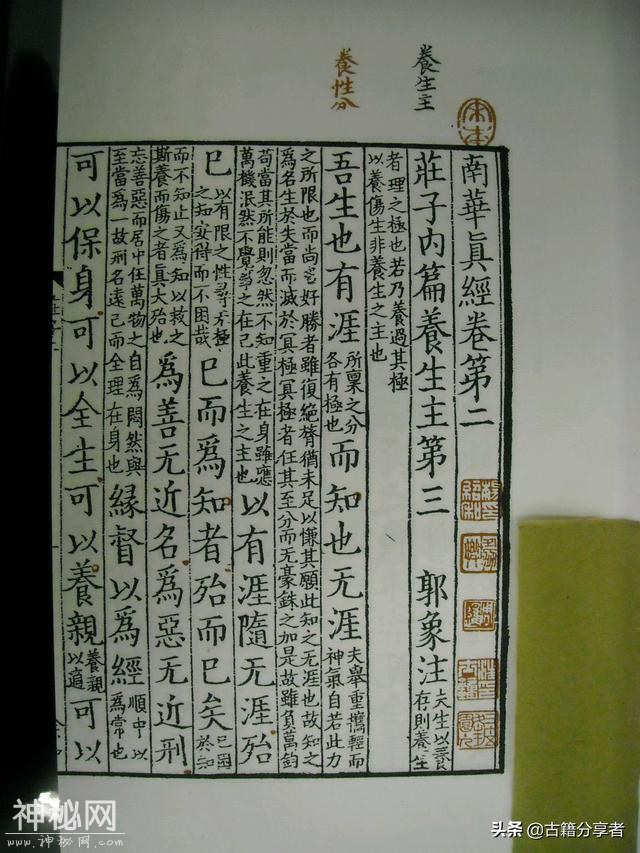 養生主
養性分
宋本
南華眞經卷第二
莊子内篇養生主第三 郭象注 夫生以養存則養生
者理之極也若乃養過其極以養傷生非養生之主也
吾生也有涯 所稟之分各有極也 而知也无涯 夫舉重攜輕而神氣自若此力
之所限也而尚名好勝者雖復絶膂猶未足以慊其願此知之无涯也故知之爲名生於失當而滅於冥極冥極者任其至分而无豪銖之加是故雖負萬鈞
苟當其所能則忽然不知重之在身雖應萬機泯然不覺事之在己此養生之主也 以有涯隨无涯殆
已 以有限之性尋无極之知安得而不困哉 已而爲知者殆而已矣 已困於知
而不知止又爲知以救之斯養而傷之者真大殆也 爲善无近名爲惡无近刑
忘善惡而居中任萬物之自爲悶然與至當爲一故刑名遠己而全理在身也 緣督以爲經 順中以爲常也
可以保身可以全生可以養親 養親以適 可以
神秘网
www.神秘网.com
头条 @古籍分享者